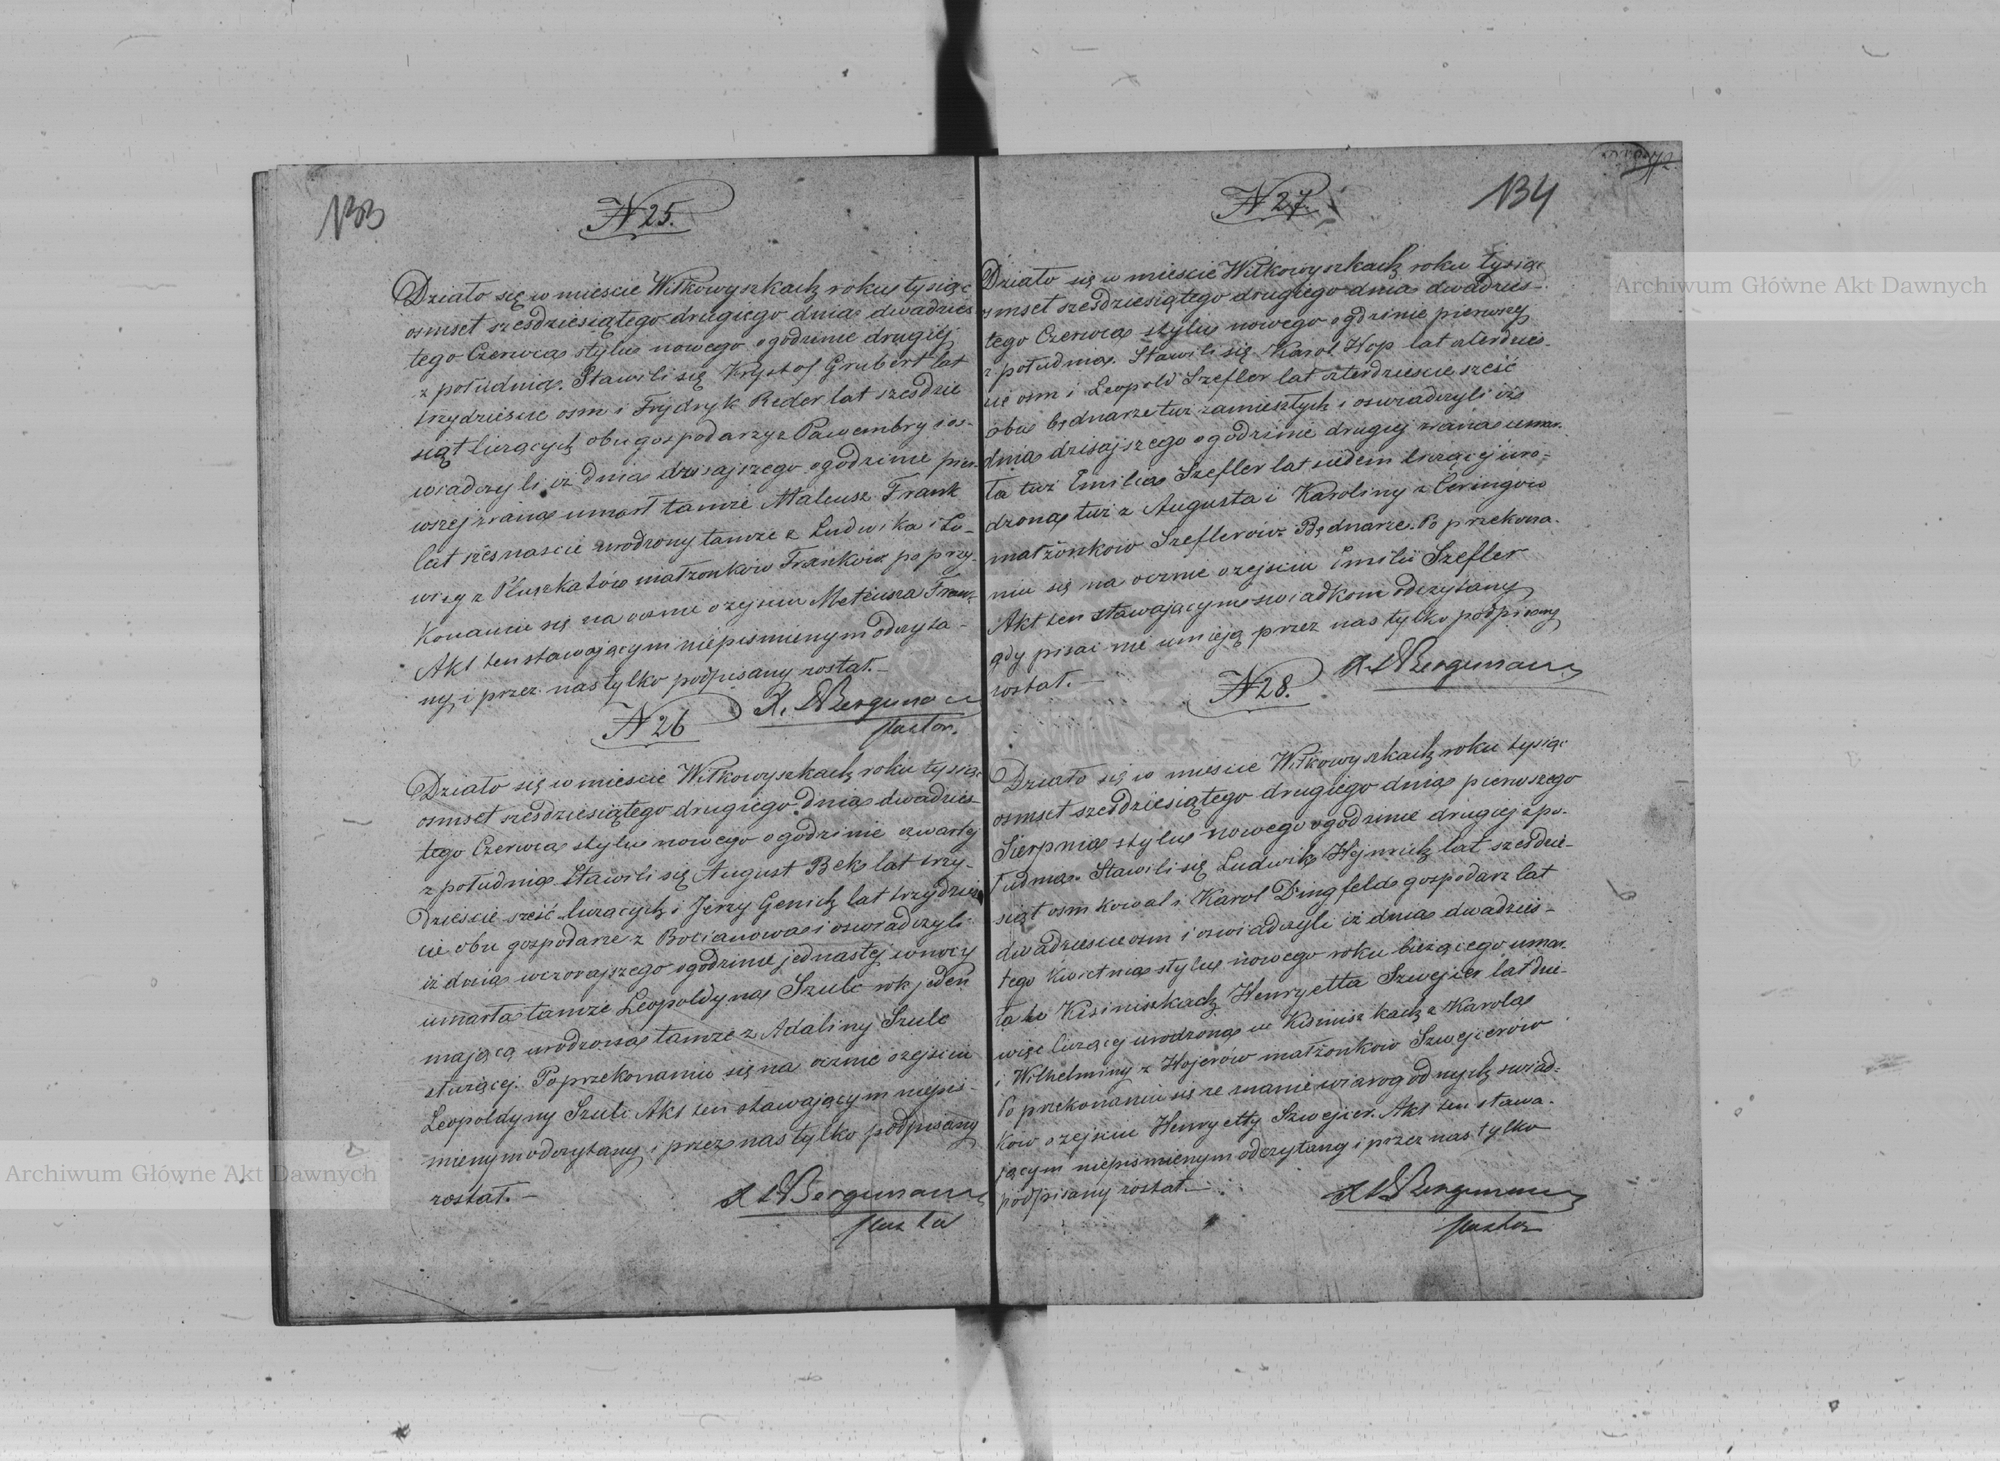 133
N 25.
Działo się w mieście Wiłkowyszkach roku tysiąc
osmset szesdziesiątego drugiego dnia dwadzies
tego Czerwca stylu nowego o godzinie drugiej
z południa. Stawili się Krysztof Grubert lat
trzydzieście osm i Frydryk Reder lat szesdzie
siąt liczących obu gospodarzy z Pawembry i os-
wiadczyli iż dnia dzisajszego o godzinie pier
wszej zrana umarł tamże Mateusz Frank
lat szesnascie urodzony tamże z Ludwika i Lo-
wisy z Pluszkatów małżonków Franków po przy-
konaniu się na ocznie o zejściu Mateusza Frank
Akt ten stawającym niepismienym odczyta-
ny i przez nas tylko podpisany został.-
K. Bergmann
pastor.
N 26
Działo się w mieście Wiłkowyszkach roku tysiąc
osmset szesdziesiątego drugiego dnia dwadzies-
tego Czerwca stylu nowego o godzinie czwartej
z południa Stawili się August Bek lat trzy-
dzieście sześć liczących i Jerzy Genich lat trzydzies
cie obu gospodarze z Bocianowa i oswiadczyli
iż dnia wczorajszego o godzinie jednastej w nocy
umarła tamże Leopoldyna Szulc rok jeden
mającą urodzona tamże z Adaliny Szulc
służącej. Po przekonaniu się na ocznie o zejściu
Leopoldyny Szulc Akt ten stawającym niepis-
mienym odczytany i przez nas tylko podpisany
został.-
Bergmann
pastor
134
N 27.
Działo się w mieście Wiłkowyszkach roku tysiąc
osmset szesdziesiątego drugiego dnia dwadzies-
tego Czerwca stylu nowego o godzinie pierwszej
z południa. Stawili się Karol Hop lat czterdzies-
cie osm i Leopold Szefler lat czterdzieście sześć
oba bednarze tuż zamieszłych i oswiadczyli iż
dnia dzisajszego o godzinie drugiej zrana umar-
ła tuż Emilia Szefler lat siedem liczący uro-
dzona tuż z Augusta i Karoliny z Ceringow
małżonkow Szeflerów Bednarze. Po przekona-
niu się na ocznie o zejściu Emilii Szefler
Akt ten stawającym swiadkom odczytany
gdy pisać nie umieją przez nas tylko podpisany
został.-
Bergmann
N 28.
Działo się w mieście Wiłkowyszkach roku tysiąc
osmset szesdziesiątego drugiego dnia pierwszego
Sierpnia stylu nowego o godzinie drugiej z po-
łudnia. Stawili się Ludwik Hejnrich lat szesdzie-
siąt osm kowal i Karol Dingfeld gospodarz lat
dwadzieście osm i oswiadczyli iż dnia dwadzies-
tego Kwietnia stylu nowego roku bieżącego umar
ła w Kisiniszkach Henryetta Szwejcer lat dzie-
więc liczący urodzona w Kisiniszkach z Karola
i Wilhelminy z Hojerów małżonkow Szwejcerów
Po przekonaniu się ze znanie wiarogodnych swiad-
ków o zejściu Henryetty Szwejcer. Akt ten stawa-
jącym niepismienym odczytany i przez nas tylko
podpisany został.-
Bergmann
pastor
Archiwum Główne Akt Dawnych
Archiwum Główne Akt Dawnych